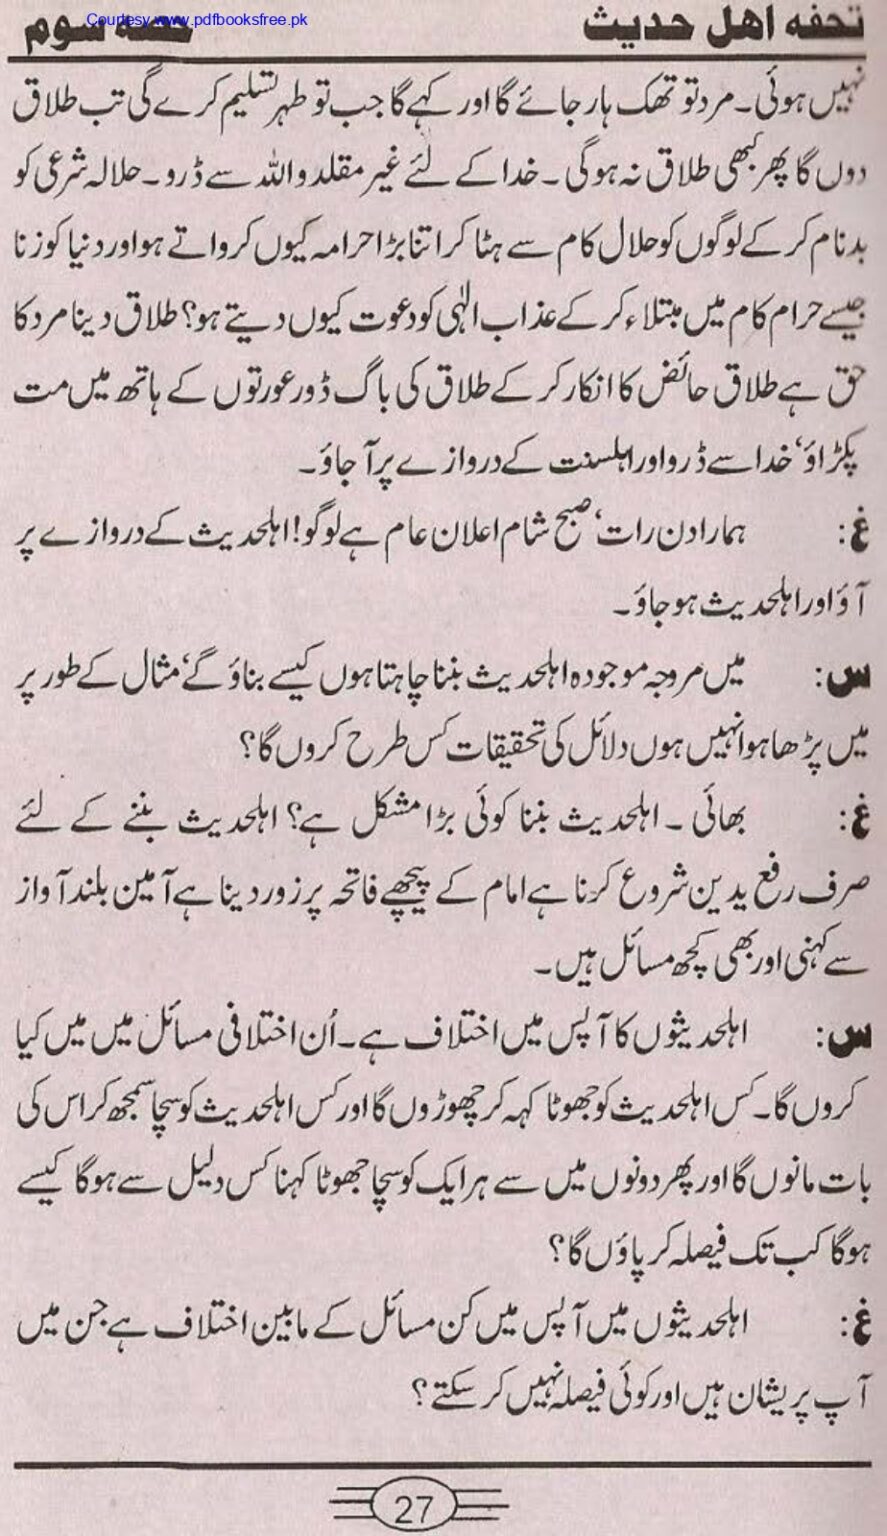 تحفہ اهل حدیث
حصہ سوم
Courtesy www.pdfbooksfree.pk
نہیں ہوئی۔ مرد تو تھک ہار جائے گا اور کہے گا جب تو طہر تسلیم کرے گی تب طلاق
دوں گا پھر کبھی طلاق نہ ہوگی۔ خدا کے لئے غیر مقلدو اللہ سے ڈرو۔ حلالہ شرعی کو
بدنام کر کے لوگوں کو حلال کام سے ہٹا کر اتنا بڑا حرامہ کیوں کرواتے ہو اور دنیا کو زنا
جیسے حرام کام میں مبتلاء کر کے عذاب الٰہی کو دعوت کیوں دیتے ہو؟ طلاق دینا مرد کا
حق ہے طلاق حائض کا انکار کر کے طلاق کی باگ ڈور عورتوں کے ہاتھ میں مت
پکڑاؤ، خدا سے ڈرو اور اہلسنت کے دروازے پر آجاؤ۔
غ: ہمارا دن رات، صبح شام اعلان عام ہے لوگو! اہلحدیث کے دروازے پر
آؤ اور اہلحدیث ہو جاؤ۔
س: میں مروجہ موجودہ اہلحدیث بننا چاہتا ہوں کیسے بناؤ گے، مثال کے طور پر
میں پڑھا ہوا نہیں ہوں دلائل کی تحقیقات کس طرح کروں گا؟
غ: بھائی ۔ اہلحدیث بننا کوئی بڑا مشکل ہے؟ اہلحدیث بننے کے لئے
صرف رفع یدین شروع کرنا ہے امام کے پیچھے فاتحہ پر زور دینا ہے آمین بلند آواز
سے کہنی اور بھی کچھ مسائل ہیں۔
س: اہلحدیثوں کا آپس میں اختلاف ہے۔ اُن اختلافی مسائل میں میں کیا
کروں گا۔ کس اہلحدیث کو جھوٹا کہہ کر چھوڑوں گا اور کس اہلحدیث کو سچا سمجھ کر اس کی
بات مانوں گا اور پھر دونوں میں سے ہر ایک کو سچا جھوٹا کہنا کس دلیل سے ہوگا کیسے
ہوگا کب تک فیصلہ کر پاؤں گا؟
غ: اہلحدیثوں میں آپس میں کن مسائل کے مابین اختلاف ہے جن میں
آپ پریشان ہیں اور کوئی فیصلہ نہیں کر سکتے؟
27